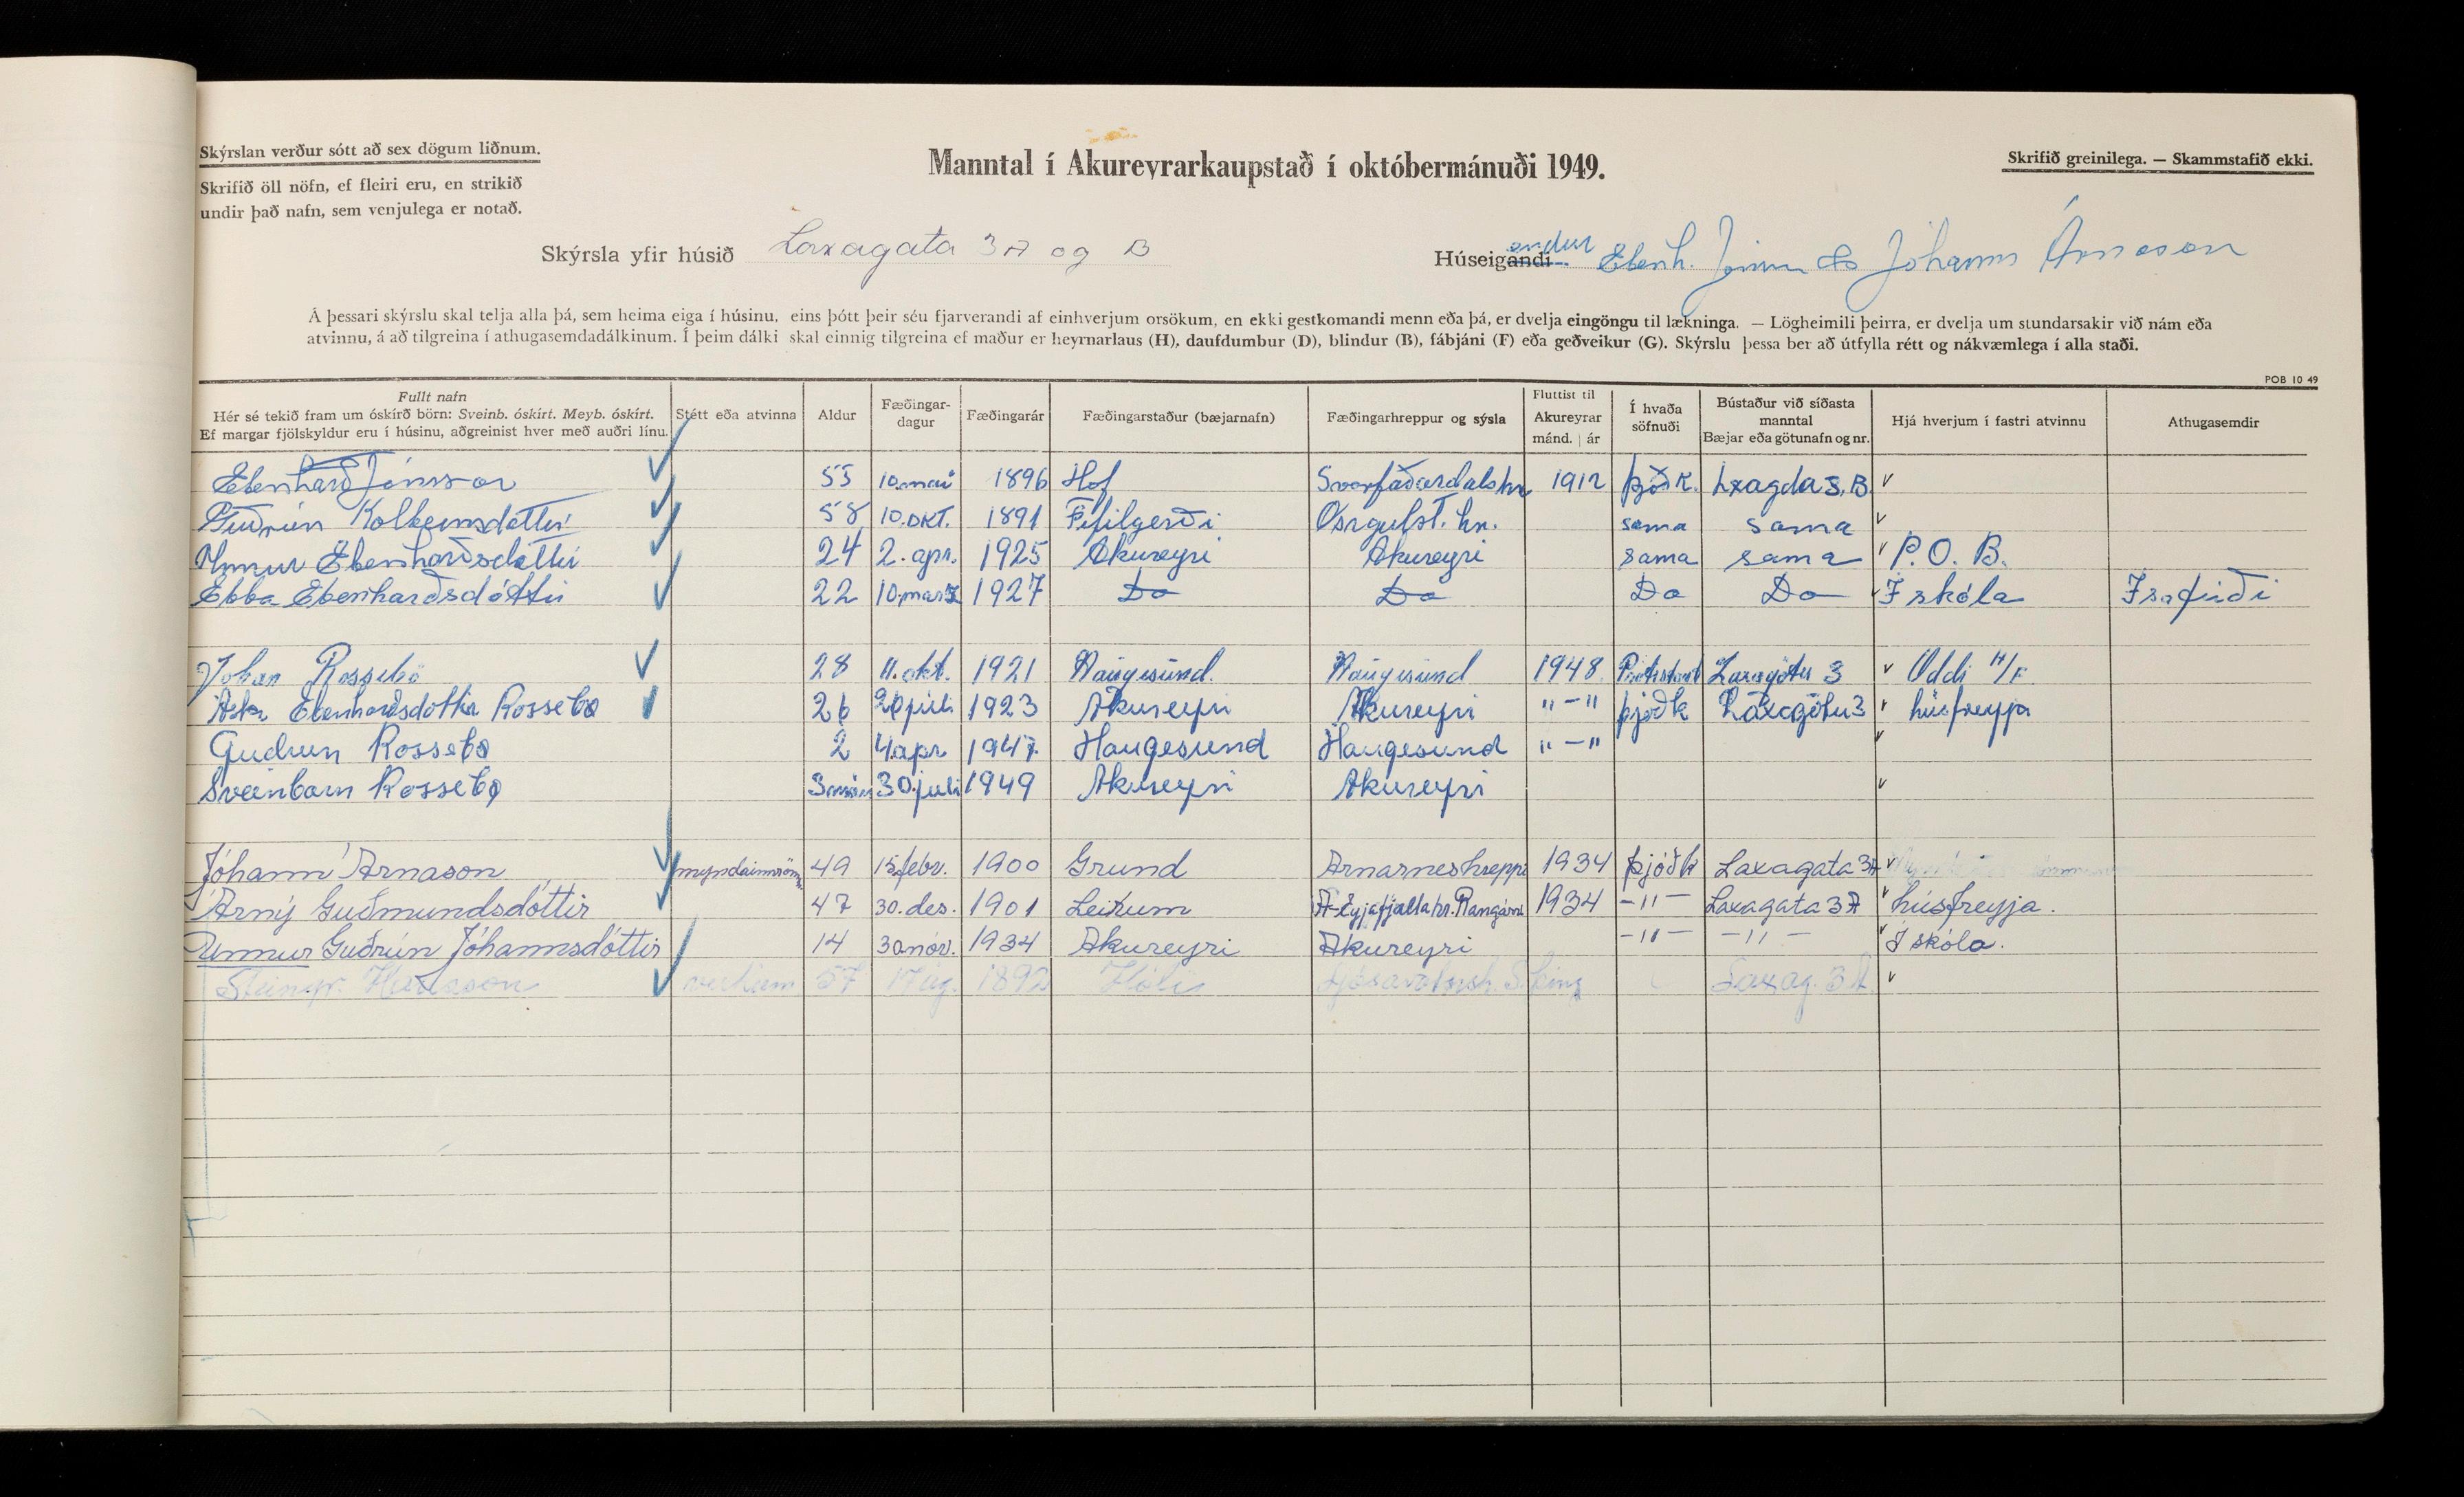 Skýrslan verður sótt að sex dögum liðnum.
Skrifið öll nöfn, ef fleiri eru, en strikið
undir það nafn, sem venjulega er notað.
Manntal í Akureyrarkaupstað í októbermánuði 1949.
Skrifið greinilega. — Skammstafið ekki.
Skýrsla yfir húsið Laxagata 3A og B
Húseigandi endur Ebenh. Jónsson & Jóhann Árnason
Á þessari skýrslu skal telja alla þá, sem heima eiga í húsinu, eins þótt þeir séu fjarverandi af einhverjum orsökum, en ekki gestkomandi menn eða þá, er dvelja eingöngu til lækninga. — Lögheimili þeirra, er dvelja um stundarsakir við nám eða
atvinnu, á að tilgreina í athugasemdadálkinum. Í þeim dálki skal einnig tilgreina ef maður er heyrnarlaus (H), daufdumbur (D), blindur (B), fábjáni (F) eða geðveikur (G). Skýrslu þessa ber að útfylla rétt og nákvæmlega í alla staði.
POB 10 49
Fullt nafn
Hér sé tekið fram um óskírð börn: Sveinb. óskírt. Meyb. óskírt.
Ef margar fjölskyldur eru í húsinu, aðgreinist hver með auðri línu.
Stétt eða atvinna
Aldur
Fæðingar-
dagur
Fæðingarár
Fæðingarstaður (bæjarnafn)
Fæðingarhreppur og sýsla
Fluttist til
Akureyrar
mánd. | ár
Í hvaða
söfnuði
Bústaður við síðasta
manntal
Bæjar eða götunafn og nr.
Hjá hverjum í fastri atvinnu
Athugasemdir
Ebenharð Jónsson 53 10. mai 1896 Hof Svarfaðardalshr 1912 þjóðk. Lxagda 3. B.
Guðrún Kolbeinsdóttir 58 10. okt. 1891 Fífilgerði Öngulst. hr. sama sama
Unnur Ebenharðsdóttir 24 2. apr. 1925 Akureyri Akureyri sama sama P. O. B.
Ebba Ebenharðsdóttir 22 10. mars 1927 Do Do Do Do Í skóla Ísafirði
Johan Rossebö 28 11. okt. 1921 Haugesund Haugesund 1948 Laxagötu 3 Oddi H/F
Ebenharðsdóttir Rossebø 26 júlí 1923 Akureyri Akureyri "–" þjóðk Laxagötu 3 húsfreyja
Gudrun Rossebø 2 4. apr 1947 Haugesund Haugesund "–"
Sveinbarn Rossebø 3 mán 30. júlí 1949 Akureyri Akureyri
Jóhann Árnason 49 15. febr. 1900 Grund Arnarneshreppi 1934 þjóðk Laxagata 3A
Árný Guðmundsdóttir 47 30. des. 1901 Leirum A-Eyjafjallahr. Rangárv. 1934 –"– Laxagata 3A húsfreyja.
Unnur Guðrún Jóhannsdóttir 14 30. nóv. 1934 Akureyri Akureyri –"– –"– Í skóla.
Steingr. 57 1892 Hóli S. Þing Laxag. 3A